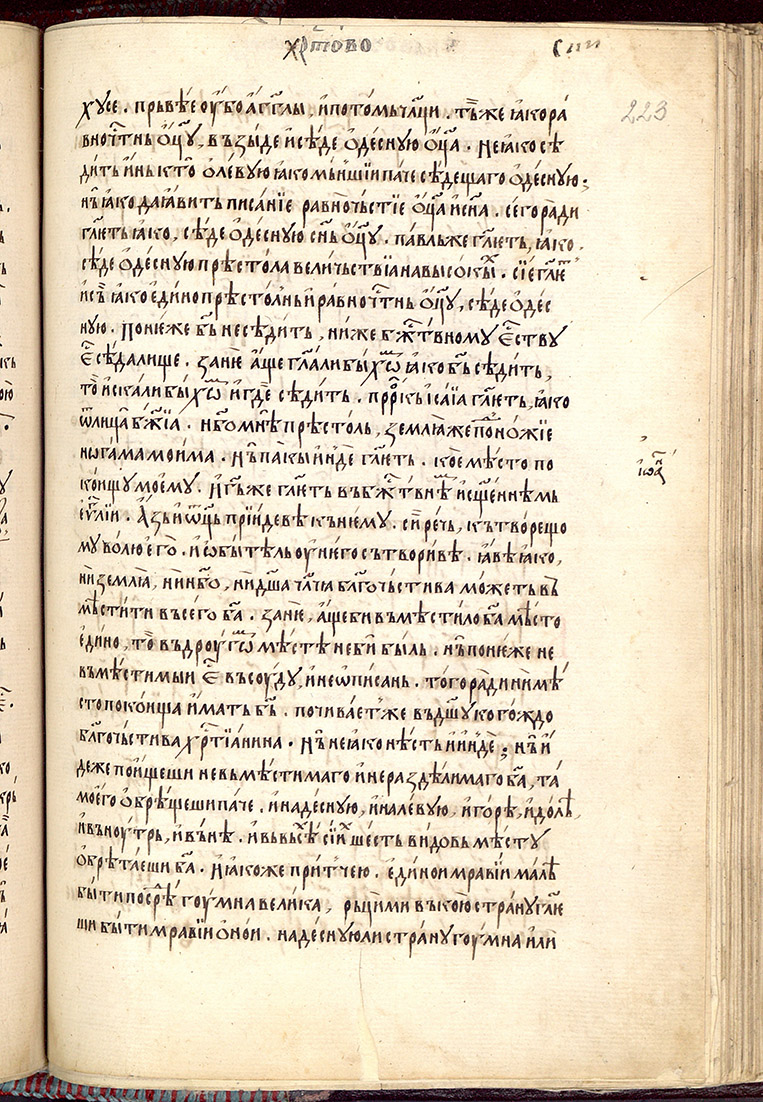 хрⷭ҇тово
223
хусе. прьвѣе оу҆бо а҆гг҃лы, и҆потомьчл҃ци. тѣⷨже ꙗ҆кора́
вночⷭ҇тнь ѻ҆ц҃у, възы́де и҆сѣ́де ѻ҆десную ѻ҆ц҃а. Неꙗ҆ко сѣ
ди́ть и҆ны кто̀ ѻ҆лѣ́вую ꙗ҆комьнꙿшїи паче сѣдещаго ѻ҆десную;
нь̀ ꙗ҆ко даꙗ҆вить писа́нїе равно̀чьстїе ѻ҆ц҃а и҆сн҃а. сегора̀ди
гл҃еть ꙗ҆ко, сѣ́де ѻ҆десную сн҃ь ѻ҆ц҃у. па́вльже гл҃еть, ꙗ҆ко.
сѣ́де ѻ҆десную прѣсто́ла вели́чьствїа навысо́кыⷯ. сїе гл҃еⷮ
ꙗ҆ко е҆ди́нопрѣсто́лнь и҆ра́вночⷭ҇тнь ѻ҆ц҃у, сѣ́де ѻ҆дес
ную. Поне́же бг҃ь несѣ́дить, ни́же бжⷭ҇твному е҆ⷭ҇ству
е҆ⷭ҇ сѣ́далище. занѐ а҆́ще гл҃а́ли бы́хѡⷨ ꙗ҆ко бг҃ь сѣ́дить,
то̀ и҆ска́ли бы́хѡⷨ и҆гдѐ сѣ́дить. прⷪ҇ркь и҆са́їа гл҃еть, ꙗ҆ко
ѿлица̀ бж҃їа. нб҃о мнѣ̀ прѣсто́ль, землꙗ́же поⷣно́жїе
ногама мои́ма. Нь̀ па́кы и҆и҆ндѐ гл҃еть. коѐ мѣ́сто по
ко́ищу мое́му. И҆ гь҃же гл҃еть въбжⷭ҇твнѣⷨ и҆сщ҃е́ннѣмь
и҆ѡⷩ҇а
еѵⷢ҇лїи. А҆зь и҆ѿц҃ь прїи́девѣ къне́му. си́рѣчь, кътворе́що
му во́лю е҆го̀. и҆ѡ҆би́тѣль оу҆не́го сътвори́вѣ. ꙗ҆вѣ ꙗ҆ко,
ни землꙗ̀, ни нб҃о, ни дш҃а чл҃ча бл҃гочьстива мо́жеть въ
мѣсти́ти въсе́го бг҃а. занѐ, а҆ще бы въмѣсти́ло бг҃а мѣ́сто
е҆ди́но, то̀ въдроу́гоⷨ мѣстѣ небы̀ бы́ль. нь̀ поне́же не
въмѣ́стимыи е҆ⷭ҇ въсоу́ду, и҆неѡ҆пи́сань. того̀ра̀ди ни мѣ́
сто поко́ища и҆мать бг҃ь. почива́етꙿже въдш҃у кого́ждо
бл҃гочьстива хрⷭ҇тїа́нина. Нь̀ неꙗ҆ко нѣ́сть и҆и҆ндѐ; нь̀ и҆
деже по́ищеши невьмѣстимаго и҆нераздѣ́лимаго бг҃а, та́
мое҆го ѻ҆брѣ́щеши паче. и҆надесную, и҆налѣ́вую, и҆горѣ̀, и҆до́лѣ,
и҆вънꙋ́трь, и҆ въ́нѣ. и҆ вьвьсѣⷯ си́иⷯ шесть ви́довь мѣ́сту
ѻ҆брѣ́тлеши бг҃а. И҆ꙗ҆коже при́тꙿчею. е҆ди́нои мравїи ма́лѣ
бы́ти посрⷣѣ́ гоу́мна вели́ка, рьци́ми въкою̀ стра́ну гл҃е
ши бы́ти мравїи ѻ҆но́и. на́десную ли стра́ну гоу́мна и҆лѝ